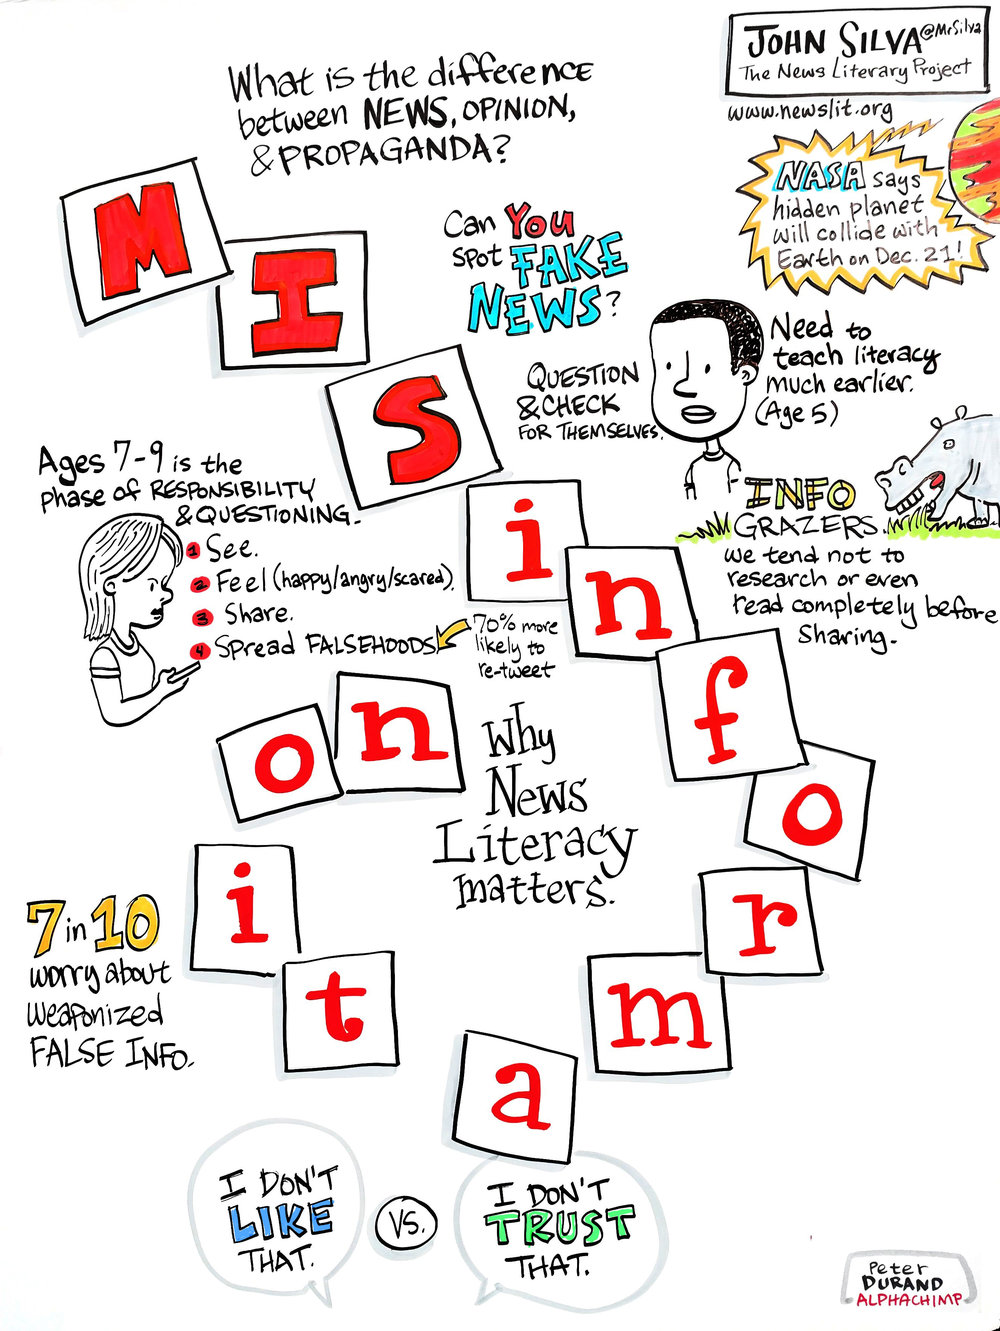 What is the difference
between NEWS, OPINION,
& PROPAGANDA?
JOHN SILVA @MrSilva
The News Literary Project
www.newslit.org
NASA says
hidden planet
will collide with
Earth on Dec. 21!
Can YOU
spot FAKE
NEWS?
MISinformation
QUESTION
& CHECK
FOR THEMSELVES.
Need to
teach literacy
much earlier.
(Age 5)
Ages 7-9 is the
phase of RESPONSIBILITY
& QUESTIONING.
1 See.
2 Feel (happy/angry/scared).
3 Share.
4 Spread FALSEHOODS
70% more
likely to
re-tweet
INFO
GRAZERS.
We tend not to
research or even
read completely before
sharing.
Why
News
Literacy
matters.
7 in 10
worry about
weaponized
FALSE INFO.
I DON'T
LIKE
THAT.
VS.
I DON'T
TRUST
THAT.
Peter
DURAND
ALPHACHIMP